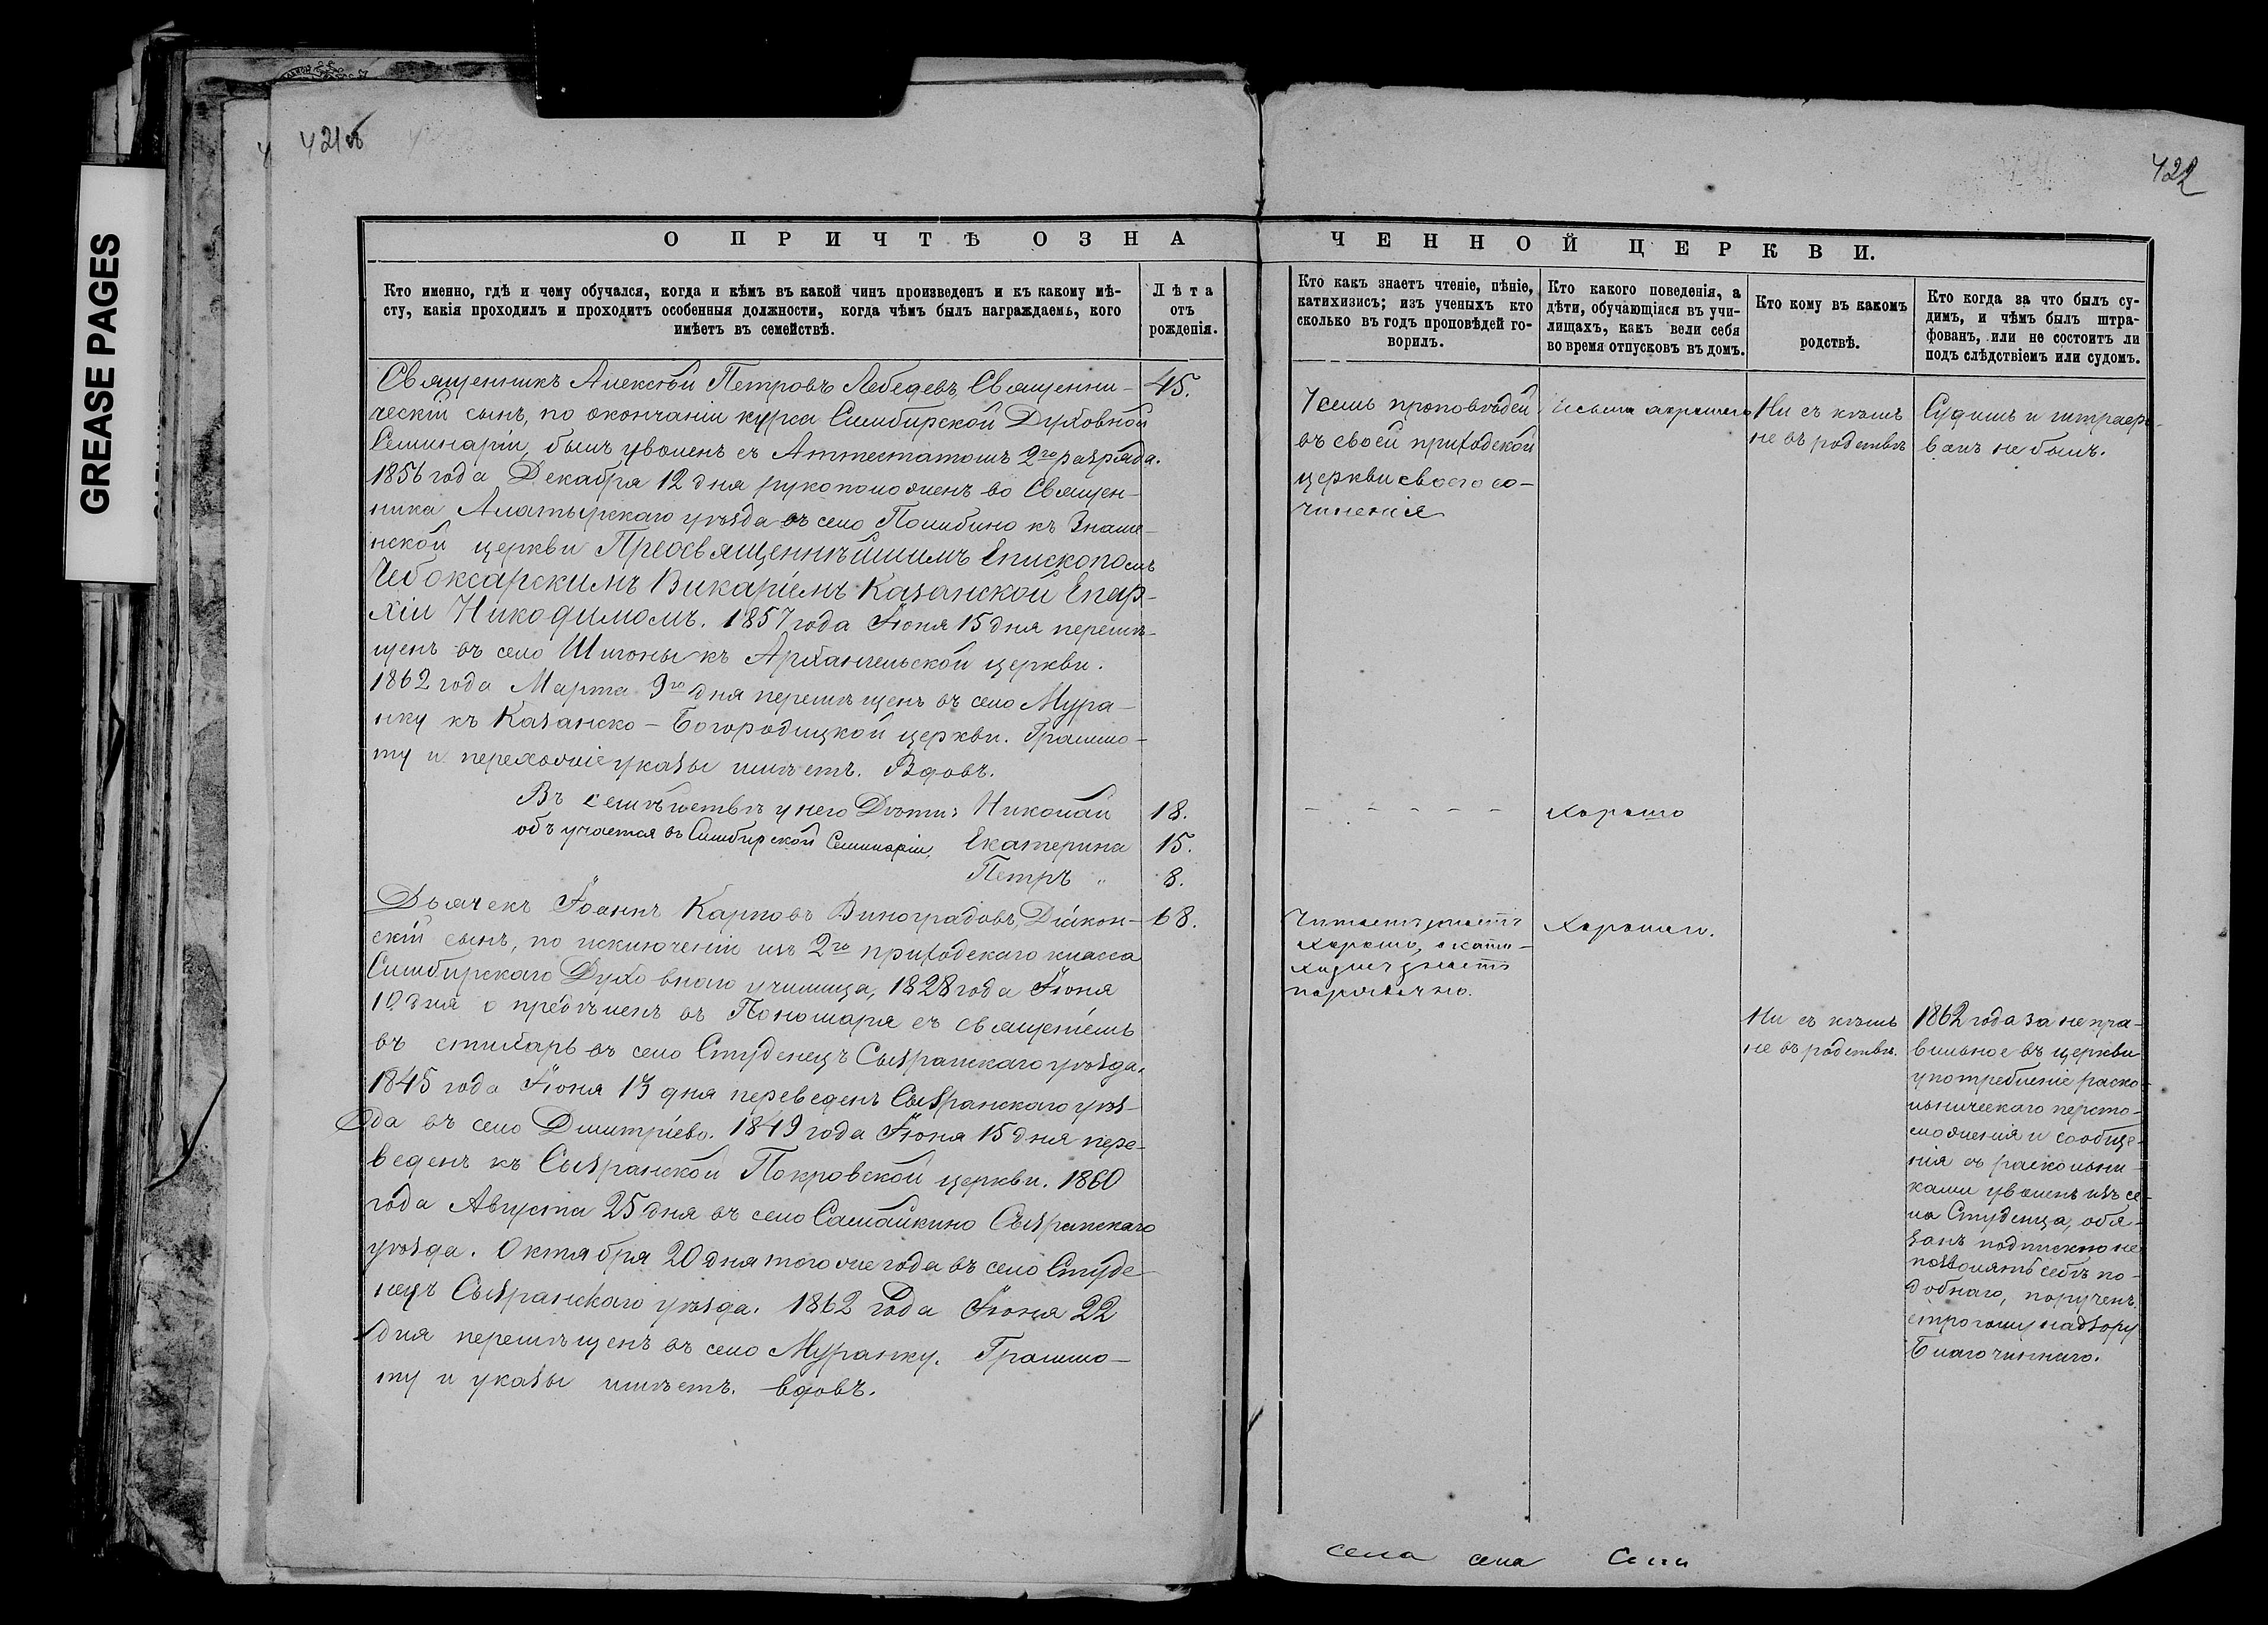 421об
422
GREASE PAGES
О ПРИЧТѢ ОЗНАЧЕННОЙ ЦЕРКВИ.
Кто именно, гдѣ и чему обучался, когда и кѣмъ въ какой чинъ произведенъ и къ какому мѣ-
сту, какія проходилъ и проходитъ особенныя должности, когда чѣмъ былъ награждаемъ, кого
имѣетъ въ семействѣ.
Лѣта
отъ
рожденія.
Кто какъ знаетъ чтеніе, пѣніе,
катихизисъ; изъ ученыхъ кто
сколько въ годъ проповѣдей го-
ворилъ.
Кто какого поведенія, а
дѣти, обучающіяся въ учи-
лищахъ, какъ вели себя
во время отпусковъ въ домъ.
Кто кому въ какомъ
родствѣ.
Кто когда за что былъ су-
димъ, и чѣмъ былъ штра-
фованъ, или не состоитъ ли
подъ слѣдствіемъ или судомъ.
Священникъ Алексѣй Петровъ Лебедевъ, Священни-
ческій сынъ, по окончаніи курса Симбирской Духовной
Семинаріи, былъ уволенъ съ Аттестатомъ 2го разряда.
1856 года Декабря 12 дня рукоположенъ во Священ-
ника Алатырскаго уѣзда въ село Полибино къ Знаме-
нской церкви Преосвященнѣйшимъ Епископомъ
Чебоксарскимъ Викаріемъ Казанской Епар-
хіи Никодимомъ. 1857 года Іюня 15 дня перемѣ-
щенъ въ село Шигоны къ Архангельской церкви.
1862 года Марта 9го дня перемѣщенъ въ село Мура-
нку къ Казанско-Богородицкой церкви. Граммо-
ту и перехожіе указы имѣетъ. Вдовъ.
45.
7 семь проповѣдей
въ своей приходской
церкви своего со-
чиненія
Ни съ кѣмъ
не въ родствѣ
Судимъ и штрафо-
ванъ не былъ.
Въ семѣйствѣ у него Дѣти: Николай 18.
обучается въ Симбирской Семинаріи, Екатерина 15.
Петръ " 8.
Хорошо
Дьячекъ Іоаннъ Карповъ Виноградовъ, Діакон-
скій сынъ, по исключеніи изъ 2го приходскаго класса
Симбирскаго Духовнаго училища, 1828 года Іюня
10 дня опредѣленъ въ Пономаря съ посвященіемъ
въ стихарь въ село Студенецъ Сызранскаго уѣзда.
1845 года Іюня 13 дня переведенъ Сызранскаго уѣз-
да въ село Димитріево. 1849 года Іюня 15 дня пере-
веденъ къ Сызранской Покровской церкви. 1860
года Августа 25 дня въ село Самайкино Сызранскаго
уѣзда. Октября 20 дня того же года въ село Студе-
нецъ Сызранскаго уѣзда. 1862 года Іюня 22
дня перемѣщенъ въ село Муранку. Граммо-
ту и указы имѣетъ. вдовъ.
68.
Читаетъ поетъ
хорошо, а кати-
хизисъ знаетъ
порядочно.
Хорошаго.
Ни съ кѣмъ
не въ родствѣ.
1862 года за непра-
вильное въ церкви
употребленіе раско-
льническаго персто-
сложенія и сообще-
нія съ раскольни-
ками уволенъ изъ се-
ла Студенца, обя-
занъ подпискою не
позволять себѣ по-
добнаго, порученъ
строгому надзору
Благочиннаго.
села села Села